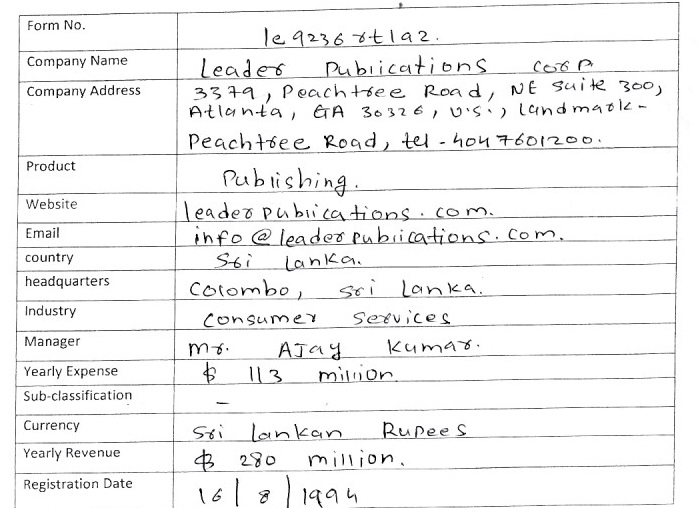 Form No. le9236rtla2.
Company Name Leader Publications Corp
Company Address 3379, Peachtree Road, NE Suite 300,
Atlanta, GA 30326, U.S., Landmark-
Peachtree Road, tel - 4047601200.
Product Publishing.
Website leaderpublications.com.
Email info@leaderpublications.com.
country Sri Lanka.
headquarters Colombo, Sri Lanka.
Industry Consumer Services
Manager Mr. Ajay Kumar.
Yearly Expense $ 113 million
Sub-classification –
Currency Sri Lankan Rupees
Yearly Revenue $ 280 million.
Registration Date 16/8/1994